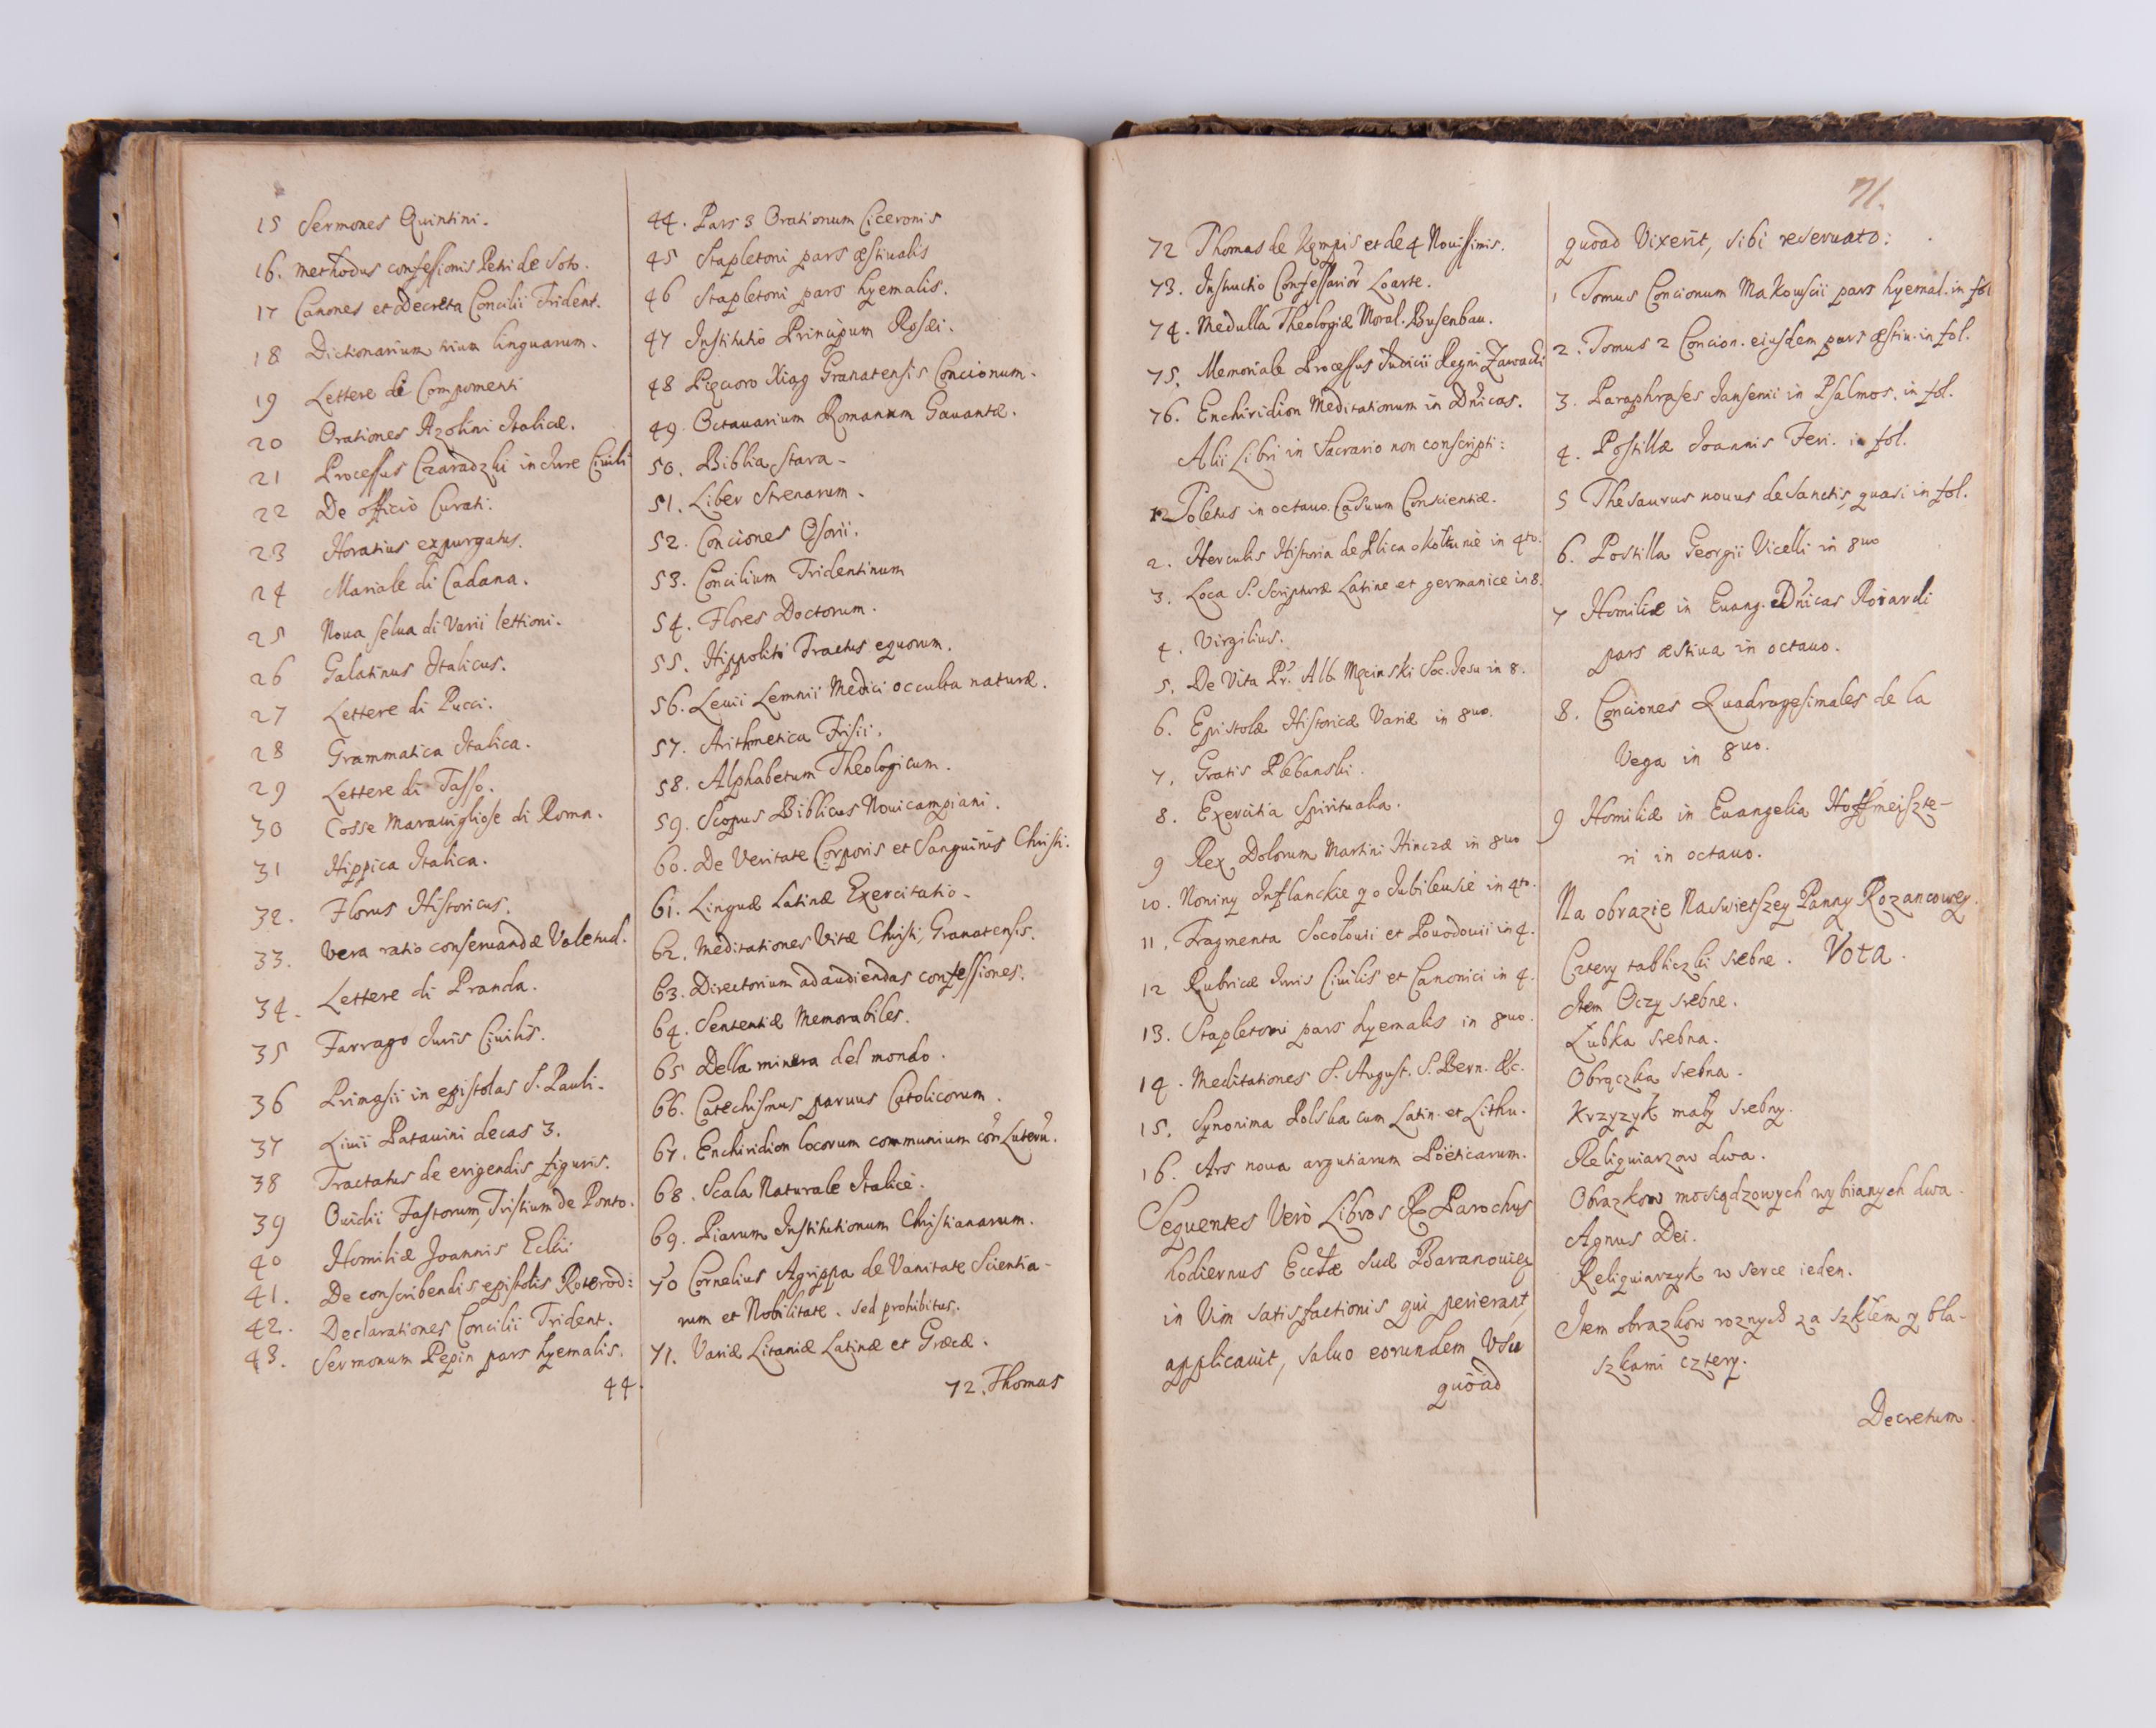 15 Sermones Quintini.
16. Methodus confessionis Petri de Soto.
17 Canones et Decreta Concilii Trident.
18 Dictionarium trium linguarum.
19 Lettere di Componenti
20 Orationes Azolini Italicæ.
21 Processus Czaradzki in Jure Civili
22 De officio Curati.
23 Horatius expurgatus.
24 Mariale di Cadana.
25 Noua selua di Varii lettioni.
26 Galatinus Italicus.
27 Lettere di Pucci.
28 Grammatica Italica.
29 Lettere di Tasso.
30 Cosse Marauigliose di Roma.
31 Hippica Italica.
32. Florus Historicus.
33. Vera ratio conseruandæ Valetud.
34. Lettere di Pranda.
35 Farrago Juris Ciuilis.
36 Primasii in epistolas S. Pauli.
37 Liuii Patauini decas 3.
38 Tractatus de erigendis figuris.
39 Ouidii Fastorum, Tristium de Ponto.
40 Homiliæ Joannis Eckii
41. De conscribendis epistolis Roterod:
42. Declarationes Concilii Trident.
43. Sermonum Pepin pars hyemalis.
44.
44. Pars 3 Orationum Ciceronis
45 Stapletoni pars æstiualis
46 Stapletoni pars hyemalis.
47 Institutio Principum Rosæi.
48 Pięcioro Xiąg Granatensis Concionum.
49. Octauarium Romanum Gauantæ.
50. Biblia stara.
51. Liber Strenarum.
52. Conciones Osorii.
53. Concilium Tridentinum
54. Flores Doctorum.
55. Hippoliti Tractus equorum.
56. Leuii Lemnii Medici occulta naturæ.
57. Arithmetica Frisii.
58. Alphabetum Theologicum.
59. Scopus Biblicus Nouicampiani.
60. De Veritate Corporis et Sanguinis Christi.
61. Linguæ Latinæ Exercitatio.
62. Meditationes Vitæ Christi, Granatensis.
63. Directorium ad audiendas confessiones.
64. Sententiæ Memorabiles.
65 Della minera del mondo.
66. Catechismus paruus Catolicorum.
67. Enchiridion locorum communium con Luteru.
68. Scala Naturale Italice.
69. Piarum Institutionum Christianarum.
70 Cornelius Agrippa de Vanitate Scientia-
rum et Nobilitate. sed prohibitus.
71. Variæ Litaniæ Latinæ et Græcæ.
72. Thomas
71.
72 Thomas de Kempis et de 4 Nouissimis.
73. Instructio Confessarior Loarte.
74. Medulla Theologiæ Moral. Busenbau.
75. Memoriale Processus Judicii Regni Zawacki
76. Enchiridion Meditationum in Dnicas.
Alii Libri in Sacrario non conscripti:
Toletus in octauo. Casuum Conscientiæ.
2. Herculis Historia de Plica o Kołtunie in 4to.
3. Loca S. Scripturæ Latine et germanice in 8.
4. Virgilius.
5. De Vita Pr. Alb. Męcinski Soc. Jesu in 8.
6. Epistolæ Historicæ Variæ in 8uo.
7. Gratis Plebanski.
8. Exercitia Spiritualia.
9 Rex Dolorum Martini Hinczæ in 8uo
10. Nowiny Inflanckie y o Jubileusie in 4to.
11. Fragmenta Socolouii et Pouodouii in 4.
12 Rubricæ Juris Ciuilis et Canonici in 4.
13. Stapletoni pars hyemalis in 8uo.
14. Meditationes S. August. S. Bern. &c.
15. Synonima Polska cum Latin. et Lithu.
16. Ars noua argutiarum Poëticarum.
Sequentes Verò Libros R. Parochus
hodiernus Ecclæ suæ Baranouien
in Vim satisfactionis qui perierant,
applicauit, saluo eorundem Vsu
quoad
quoad Vixerit, sibi reseruato:
1 Tomus Concionum Makowscii pars hyemal. in fol
2. Tomus 2 Concion. eiusdem pars æstiu. in fol.
3. Paraphrases Jansenii in Psalmos. in fol.
4. Postillæ Joannis Feri. in fol.
5 Thesaurus nouus de Sanctis, quasi in fol.
6. Postilla Georgii Vicelli in 8uo
7 Homiliæ in Euang. Dnicas Roiardi
pars æstiua in octauo.
8. Conciones Quadragesimales de la
Vega in 8uo.
9 Homiliæ in Euangelia Hoffmeiszte-
ri in octauo.
Na obrazie Naswietszey Panny Rozancowey.
Cztery tabliczki srebne. Vota.
Item Oczy srebne.
Ząbka srebna.
Obrączka srebna.
Krzyzyk mały srebny.
Religuiarzow dwa.
Obrazkow mosiądzowych wybiianych dwa.
Agnus Dei.
Religuiarzyk w serce ieden.
Item obrazkow roznych za szkłem y bla-
szkami cztery.
Decretum.